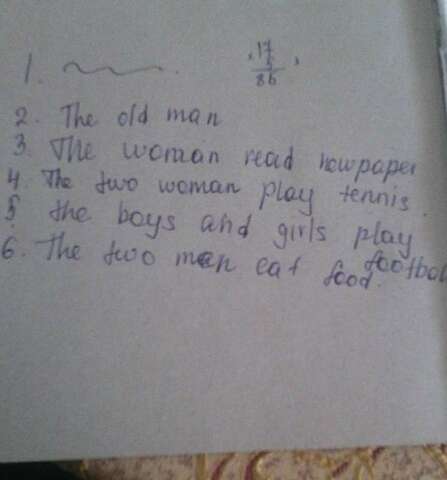 1.
17
5
86
2. The old man
3. The woman read nowpaper
4. The two woman play tennis.
5 the boys and girls play
footbol
6. The two men eat food.